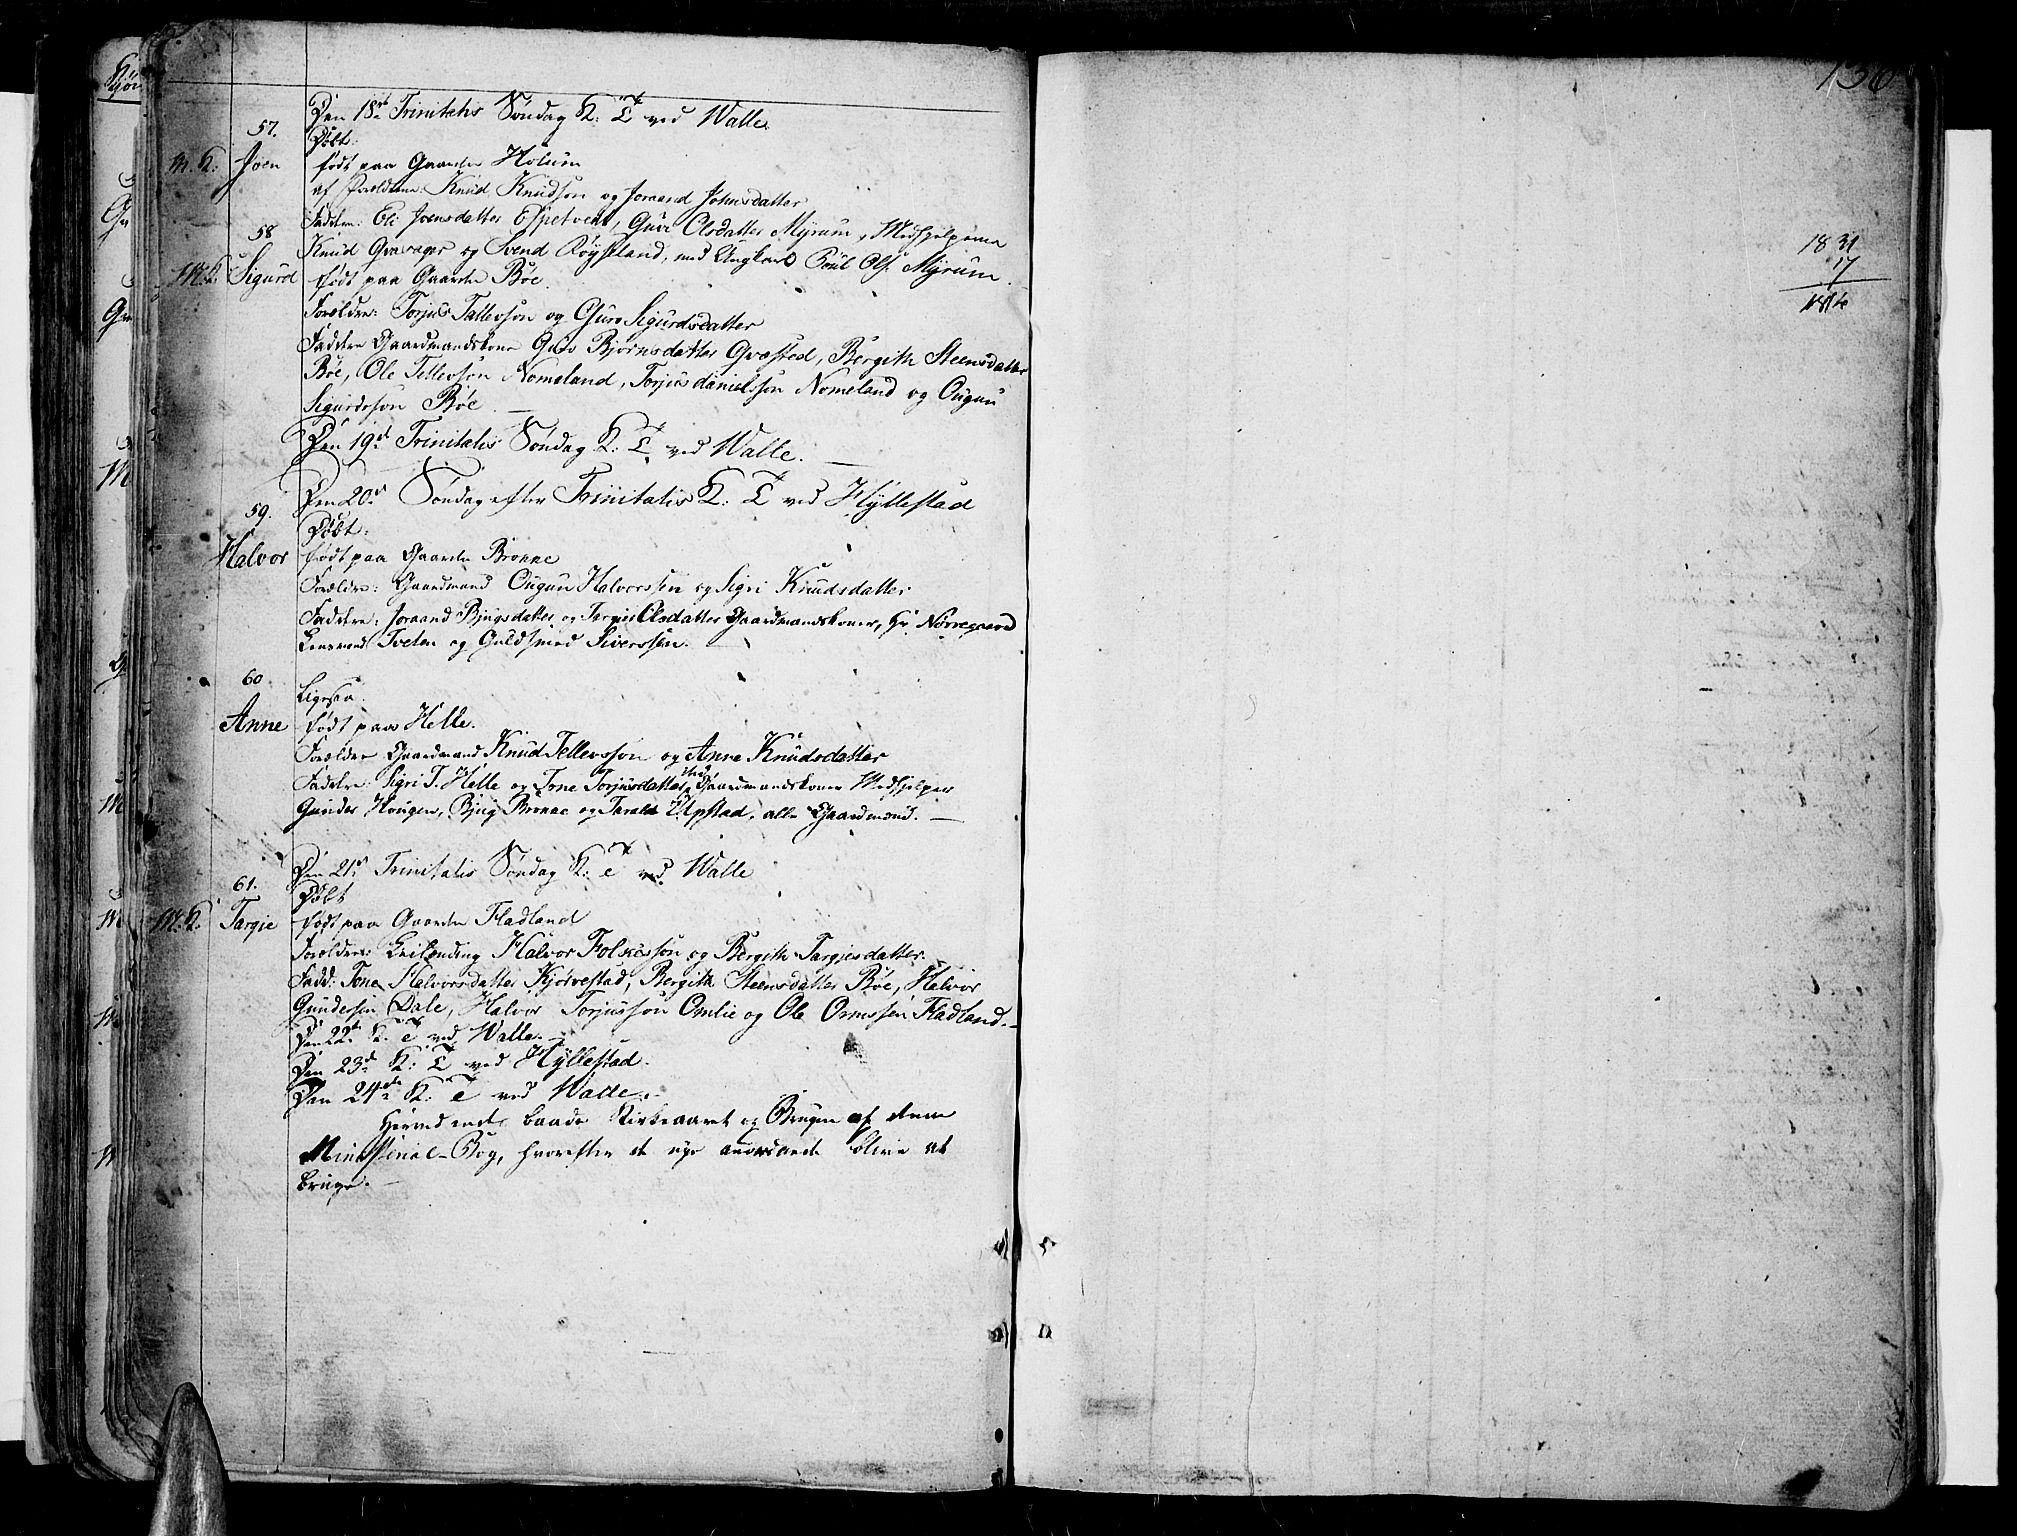 136
Den 18de Trinitatis Søndag K: T ved Walle.
57.
Døbt:
M. K: Joen født paa Gaarden Holum
af Forældrene: Knud Knudson og Joraand Johnsdatter
Faddere: Eli Joensdatter Espetveit, Guri Olsdatter Myrum, Medhjelperne
58
Knud Qvavager og Svend Røysland, med Ungkarl Poul Ols: Myrum.
M. K: Sigurd født paa Gaarden Bøe.
Forældre: Torjus Tallevson og Guro Sigurdsdatter
Faddere Gaardmandskone Guro Bjørnsdatter Qvæsted, Bergith Steensdatter
Bøe, Ole Tellevson Nomeland, Torjus danielsson Nomeland og Ougun
Sigurdsson Bøe.
Den 19de Trinitatis Søndag K: T. ved Walle.
Den 20de Søndag efter Trinitatis K: T ved Hyllestad
59.
Døbt:
Halvor født paa Gaarden Brokke
Forældre: Gaardmand Ougun Halvorssen og Sigri Knudsdatter
Faddere: Joraand Bjugsdatter og Targier Olsdatter Gaardmandskoner, Hr Nørregaard
Lensmand Tveten og Guldsmed Siverssen.
60
Ligesaa.
Anne født paa Helle.
Forældre Gaardmand Knud Tellevsson og Anne Knudsdatter
Faddere: Sigri T. Helle og Tone Torjusdatter Gaardmandskoner Medhjelper
Gunder Hougen, Bjug Brokke og Tarald Upstad, alle Gaardmænd.
Den 21de Trinitatis Søndag K: T ved Walle
61.
Døbt
M. K. Targie født paa Gaarden Fladland
Forældre: Leilending Halvor Folkesson og Bergith Targiesdatter.
Fadd: Tone Halvorsdatter Kjørvestad, Bergith Steensdatter Bøe, Halvor
Gundersen Dale, Halvor Torjusson Omlie og Ole Ormssen Fladland.
Den 22de K. T ved Walle.
Den 23de K: T ved Hyllestad.
Den 24de K: T ved Walle.
Herved endes baade Kirkeaaret og Brugen af denne
Ministerial-Bog, hvorefter et nye anordnede blive at
bruge.
1831
17
1814